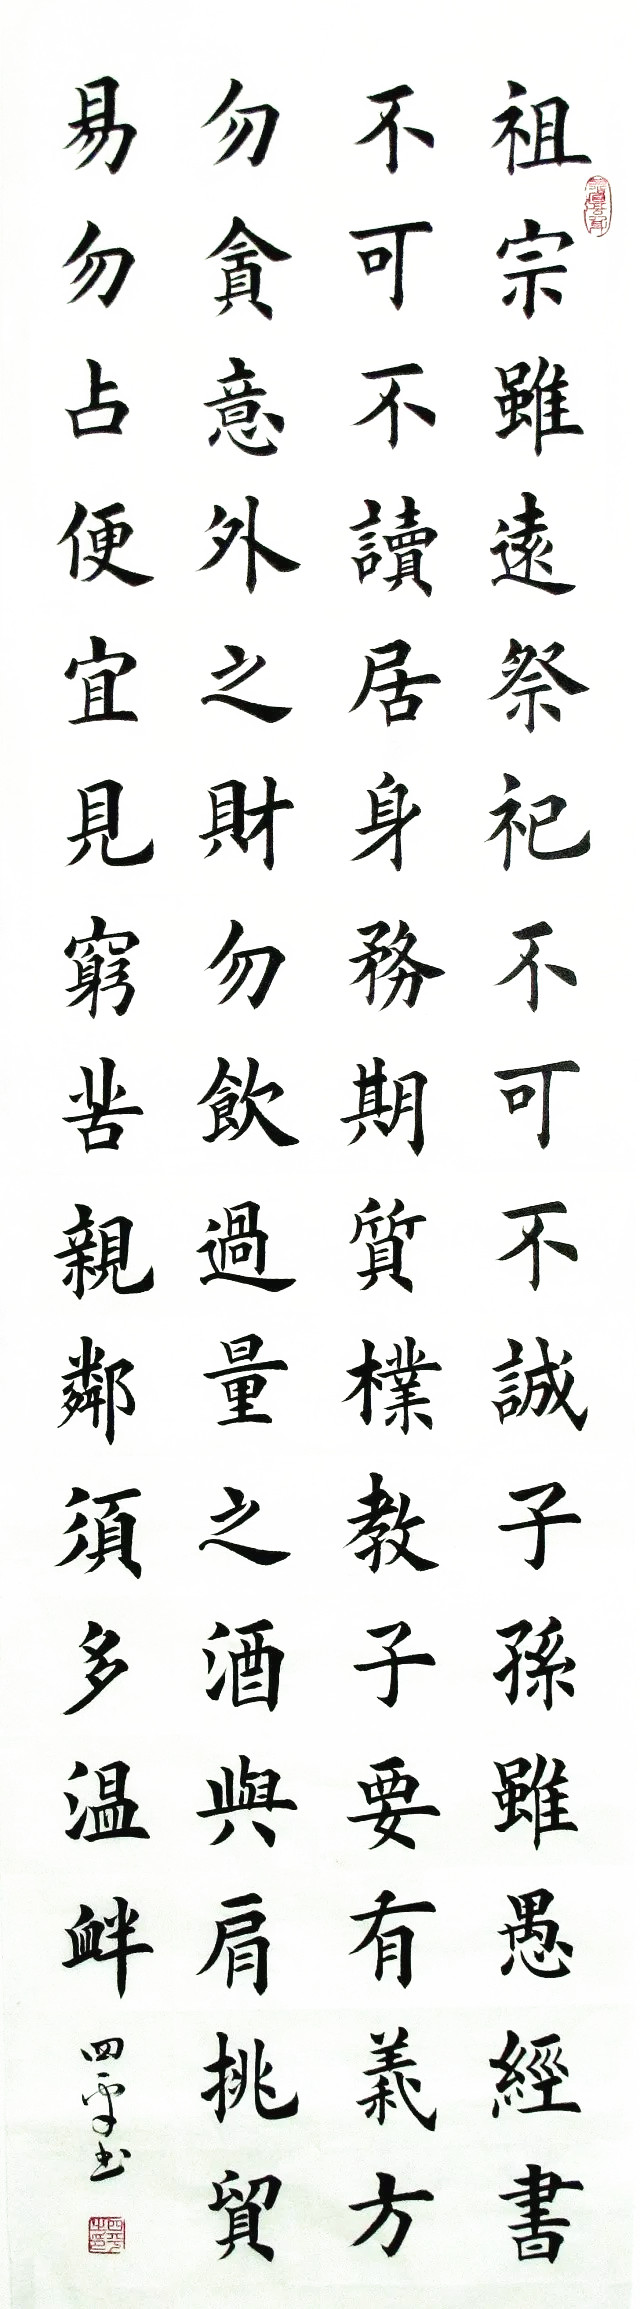 祖宗雖遠祭祀不可不誠子孫雖愚經書
不可不讀居身務期質樸教子要有義方
勿貪意外之財勿飲過量之酒與肩挑貿
易勿占便宜見窮苦親鄰須多温衅
四平书